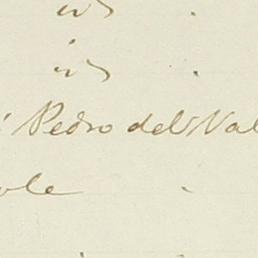 id
id
Pedro del Val
ole